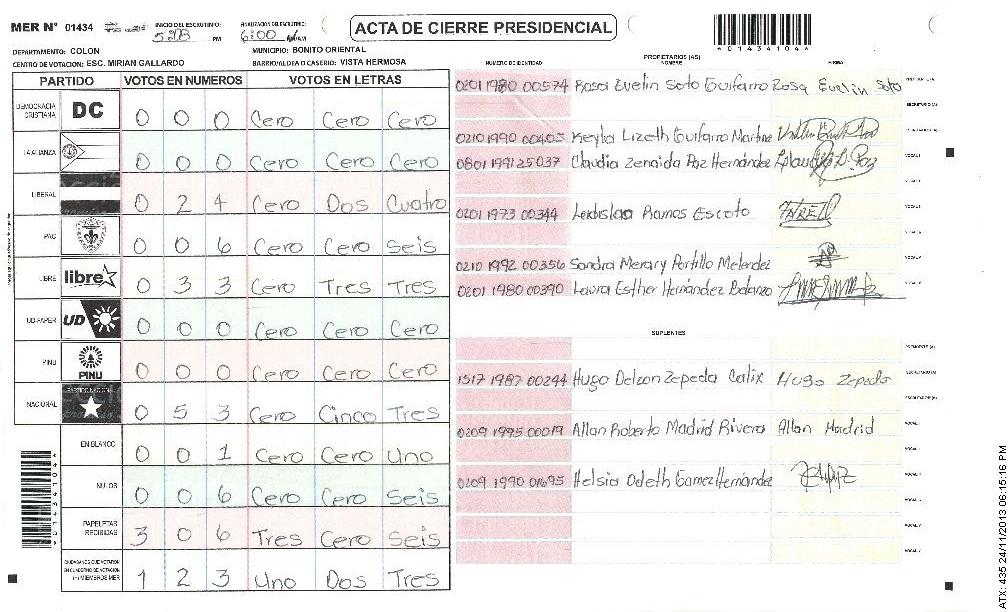 MER N° 01434 INICIO DEL ESCRUTINIO: PM FINALIZACION DEL ESCRUTINIO: 6:00 ACTA DE CIERRE PRESIDENCIAL
01434104
DEPARTAMENTO: COLON MUNICIPIO: BONITO ORIENTAL
CENTRO DE VOTACION: ESC. MIRIAN GALLARDO BARRIO/ALDEA O CASERIO: VISTA HERMOSA
PARTIDO VOTOS EN NUMEROS VOTOS EN LETRAS
DEMOCRACIA CRISTIANA DC 0 0 0 Cero Cero Cero
LA ALIANZA 0 0 0 Cero Cero Cero
LIBERAL 0 2 4 Cero Dos Cuatro
PAC 0 0 6 Cero Cero Seis
LIBRE libre 0 3 3 Cero Tres Tres
UD-FAPER UD 0 0 0 Cero Cero Cero
PINU PINU 0 0 0 Cero Cero Cero
NACIONAL 0 5 3 Cero Cinco Tres
EN BLANCO 0 0 1 Cero Cero Uno
NULOS 0 0 6 Cero Cero Seis
PAPELETAS RECIBIDAS 3 0 6 Tres Cero Seis
CIUDADANOS QUE VOTARON EN CUADERNO DE VOTACION (+) MIEMBROS MER 1 2 3 Uno Dos Tres
PROPIETARIOS (AS)
NUMERO DE IDENTIDAD NOMBRE FIRMA
0201 1980 00574 Rosa Evelin Soto Guifarro Rosa Evelin Soto
0210 1990 00405 Keylia Lizeth Guifarro Martine
0801 1991 25037 Claudia Zenaida Paz Hernández
0201 1973 00344 Ramos Escoto
0210 1992 00356 Sandra Merary Portillo Melendez
0201 1980 00390 Laura Esther Hernandez
SUPLENTES
1517 1987 00244 Hugo Delzon Zepeda Calix Hugo Zepeda
0209 1995 00019 Allan Roberto Madrid Rivera Allan Madrid
0209 1990 01695 Helsia Odeth Gamez Hernández
ATX: 435 24/11/2013 06:15:16 PM